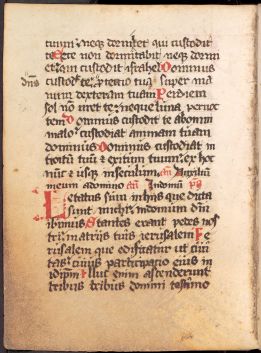 tuum neq; dormiet qui custodit
te Ecce non dormitabit neq; dormi
et qui custodit israhel Dominus
dn̄s
custodit te protectio tua super ma
num dexteram tuam Per diem
sol nō uret te neque luna per noc
tem Dominus custodit te ab omni
malo custodiat animam tuam
dominus Dominus custodiat in
troitū tuū & exitum tuum ex hoc
nūc & usq; in seculum an̄ Auxiliū
meum a domino an̄ In domū ps̄
Letatus sum in hiis que dicta
sunt michi in domum dn̄i
ibimus Stantes erant pedes nos
tri in atriis tuis ierusalem Ie
rusalem que edificatur ut ciui
tas cuius participatio eius in
idip̄m Illuc enim ascenderunt
tribus tribus domini testimo